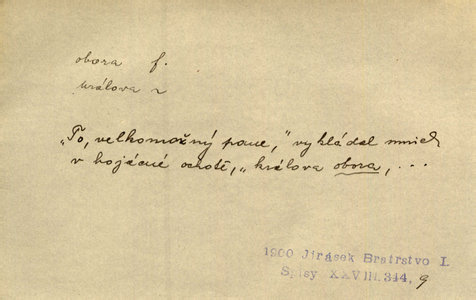 obora f.
králova ~
„To, velkomožný pane,“ vykládal mnich
v hojácné ochotě, „králova obora, ...
1900 Jirásek Bratrstvo I.
Spisy XXVIII. 314, 9